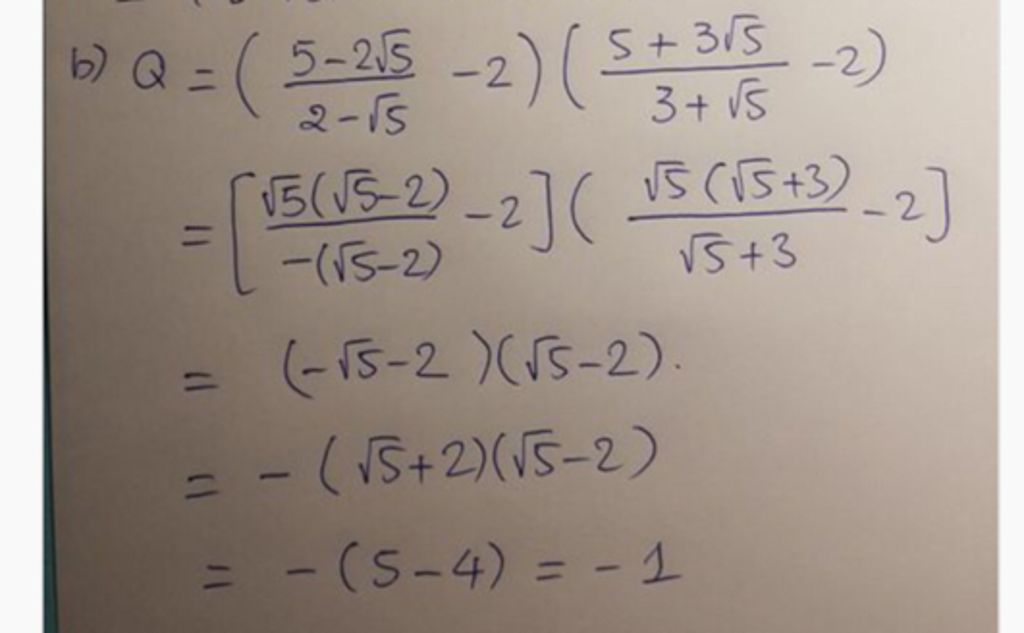 b) Q = ( (5-2√5)/(2-√5) -2) ( (5+3√5)/(3+√5) -2)
= [ (√5(√5-2))/(-(√5-2)) -2] ( (√5(√5+3))/(√5+3) -2]
= (-√5-2)(√5-2).
= - (√5+2)(√5-2)
= - (5-4) = -1